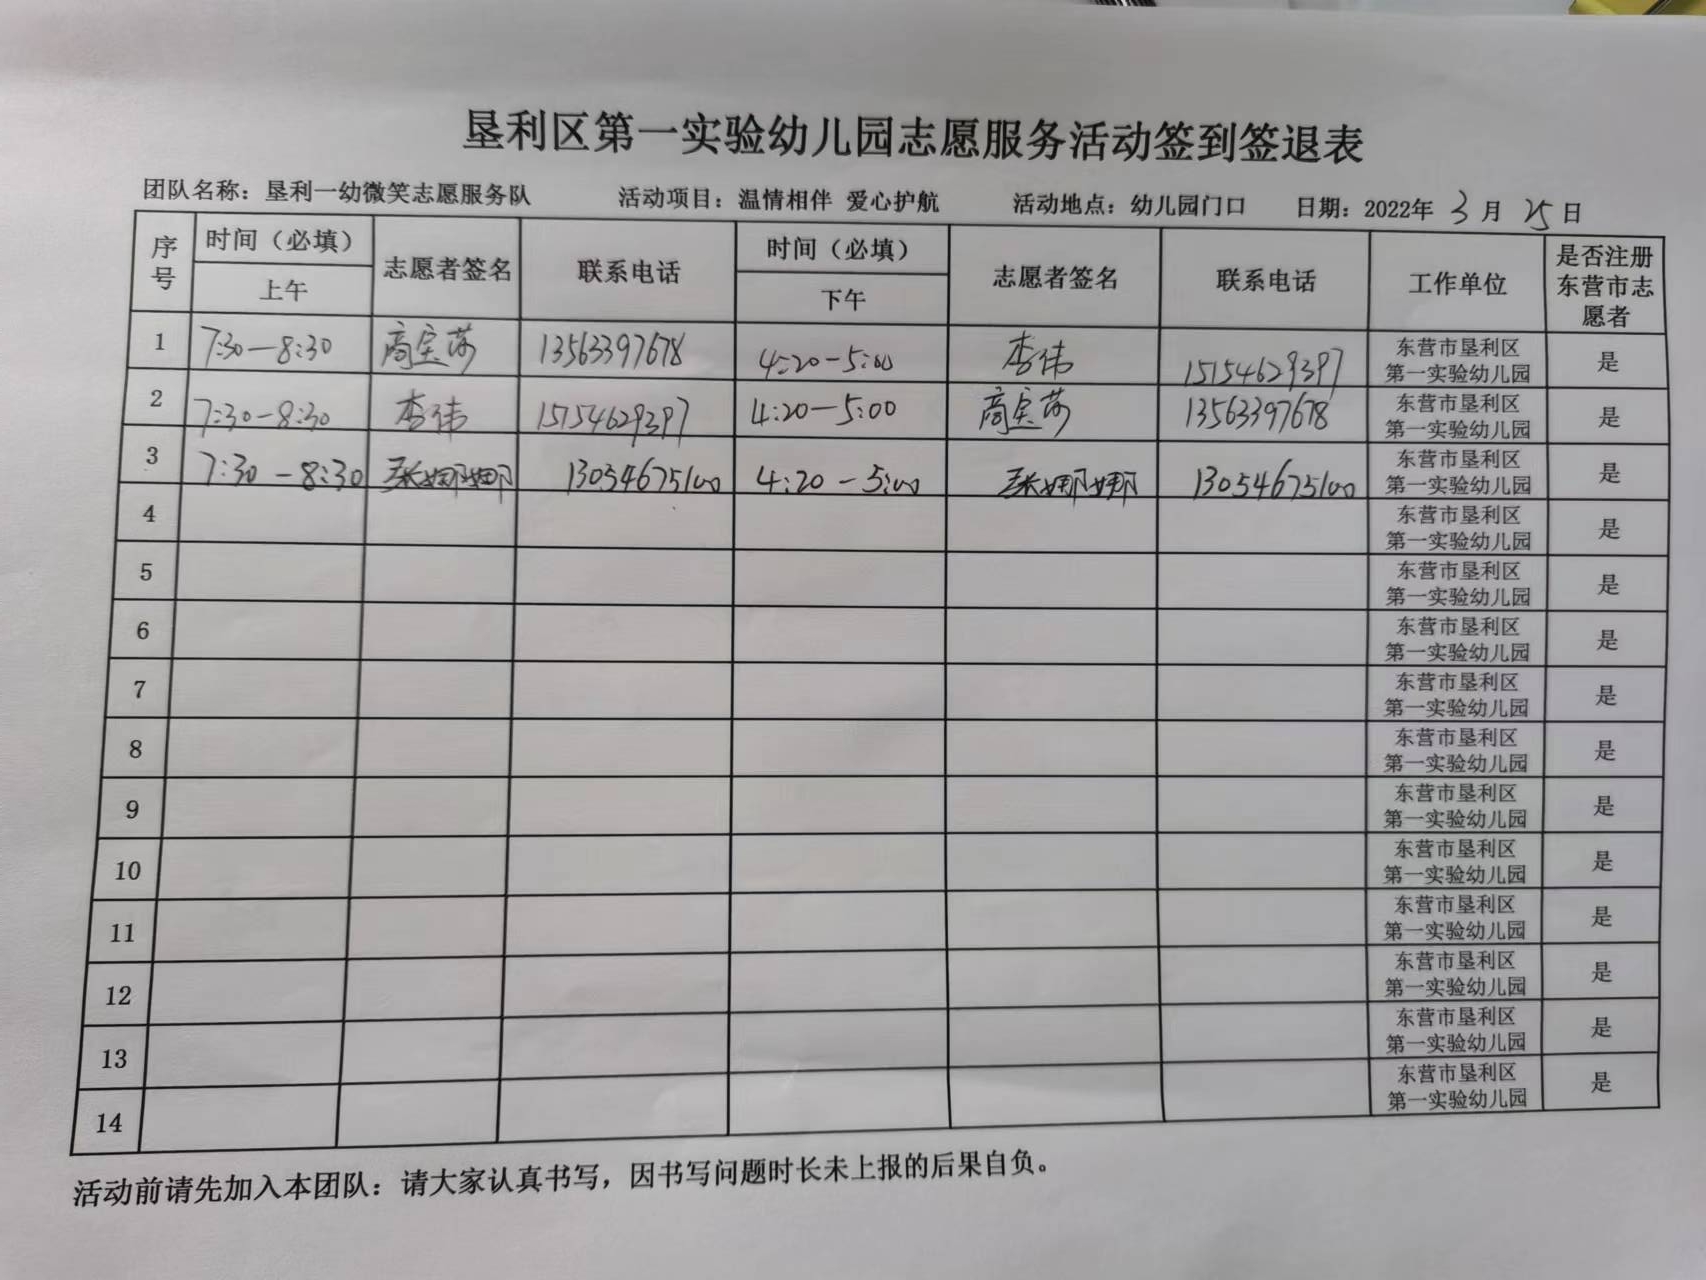 垦利区第一实验幼儿园志愿服务活动签到签退表
团队名称：垦利一幼微笑志愿服务队 活动项目：温情相伴 爱心护航 活动地点：幼儿园门口 日期：2022年 3 月 25 日
序号 时间（必填） 志愿者签名 联系电话 时间（必填） 志愿者签名 联系电话 工作单位 是否注册东营市志愿者
上午 下午
1 7:30—8:30 高宝莎 13563397678 4:20-5:00 李伟 15154629397 东营市垦利区第一实验幼儿园 是
2 7:30-8:30 李伟 15154629397 4:20—5:00 高宝莎 13563397678 东营市垦利区第一实验幼儿园 是
3 7:30-8:30 张娜娜 13054675100 4:20-5:00 张娜娜 13054675100 东营市垦利区第一实验幼儿园 是
4 东营市垦利区第一实验幼儿园 是
5 东营市垦利区第一实验幼儿园 是
6 东营市垦利区第一实验幼儿园 是
7 东营市垦利区第一实验幼儿园 是
8 东营市垦利区第一实验幼儿园 是
9 东营市垦利区第一实验幼儿园 是
10 东营市垦利区第一实验幼儿园 是
11 东营市垦利区第一实验幼儿园 是
12 东营市垦利区第一实验幼儿园 是
13 东营市垦利区第一实验幼儿园 是
14 东营市垦利区第一实验幼儿园 是
活动前请先加入本团队：请大家认真书写，因书写问题时长未上报的后果自负。